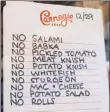 Carnegie 12/29
NO SALAMI
NO BABKA
NO PICKLED TOMATO
NO MEAT KNISH
NO POTATO KNISH
NO WHITEFISH
NO STURGEON
NO MAC + CHEESE
NO POTATO SALAD
NO ROLLS